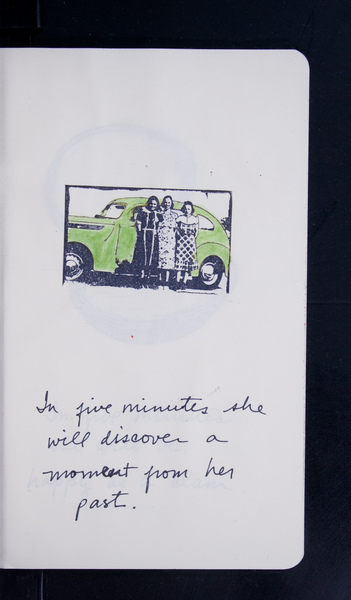 In five minutes she
will discover a
moment from her
past.